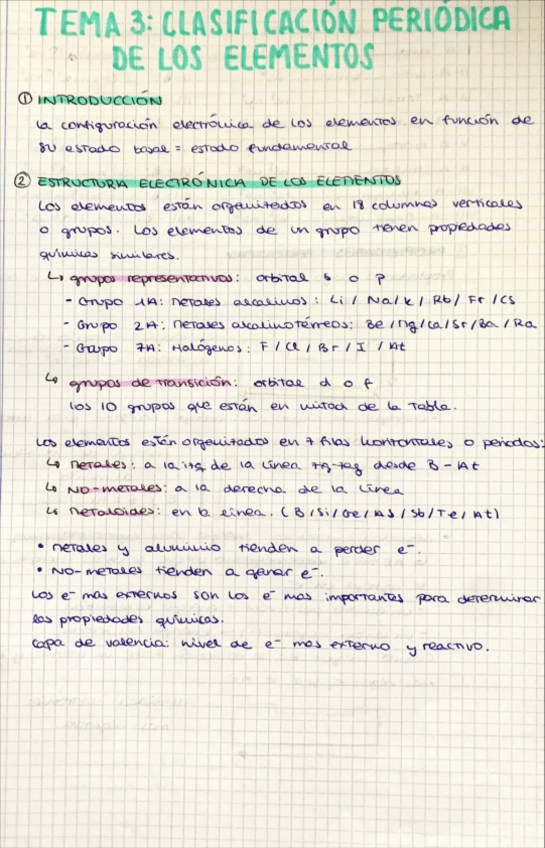 TEMA 3: CLASIFICACIÓN PERIÓDICA
DE LOS ELEMENTOS
① INTRODUCCIÓN
La configuración electrónica de los elementos en función de
su estado basal = estado fundamental
② ESTRUCTURA ELECTRÓNICA DE LOS ELEMENTOS
Los elementos están organizados en 18 columnas verticales
o grupos. Los elementos de un grupo tienen propiedades
químicas similares.
↳ grupos representativos: orbital s o p
- Grupo 1A: Metales alcalinos: Li / Na / K / Rb / Fr / Cs
- Grupo 2A: Metales alcalinotérreos: Be / Mg / Ca / Sr / Ba / Ra
- Grupo 7A: Halógenos: F / Cl / Br / I / At
↳ grupos de transición: orbital d o f
los 10 grupos que están en mitad de la Tabla.
Los elementos están organizados en 7 filas horizontales o periodos:
↳ Metales: a la izq de la línea zig-zag desde B - At
↳ NO-metales: a la derecha de la línea
↳ Metaloides: en la línea. (B / Si / Ge / As / Sb / Te / At)
• Metales y aluminio tienden a perder e⁻.
• NO-metales tienden a ganar e⁻.
Los e⁻ mas externos son los e⁻ mas importantes para determinar
las propiedades químicas.
Capa de valencia: nivel de e⁻ mas externo y reactivo.